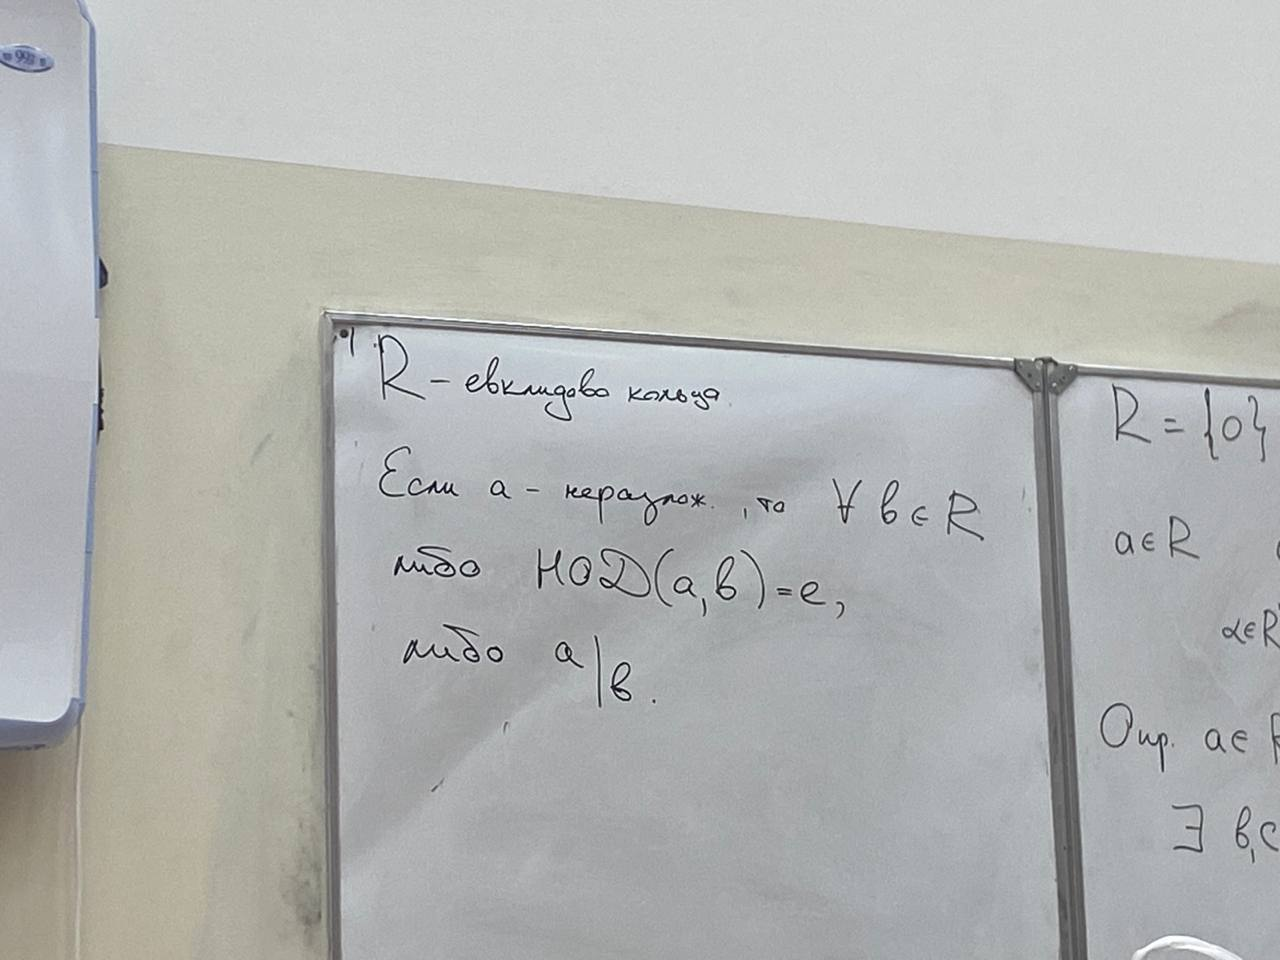 R - евклидово кольцо.
Если a - неразлож., то ∀ b ∈ R
либо НОД(a,b) = e,
либо a | b.
R = {0}
a ∈ R
α ∈ R
Опр. a ∈ R
∃ b, c